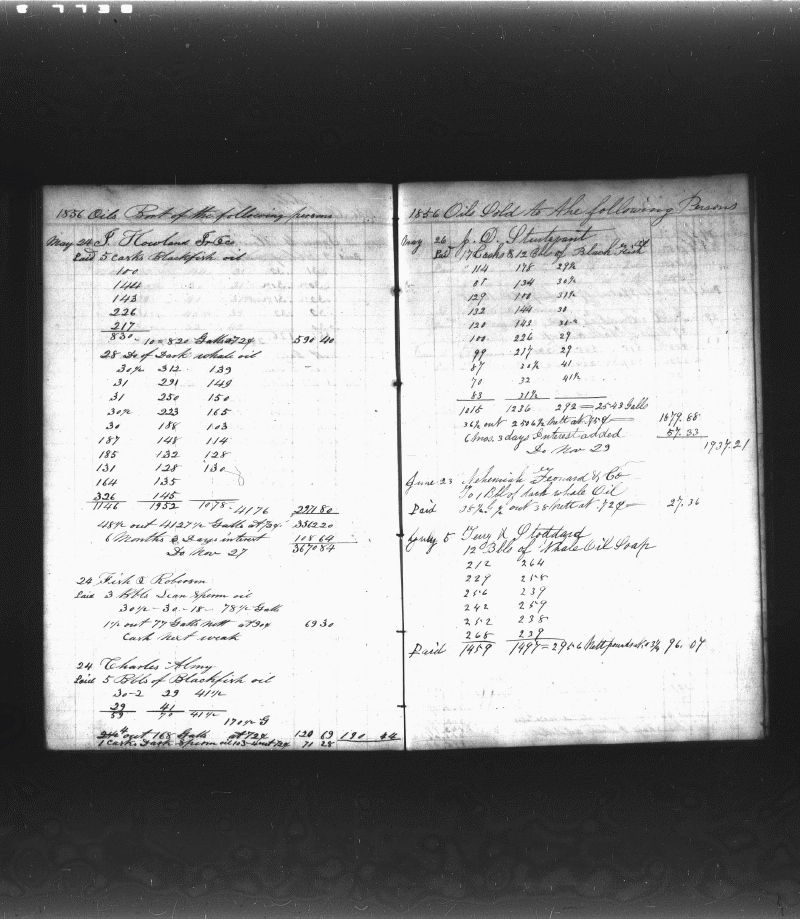 1856 Oils Bout of the following persons
May 24 J. Howland Jr & Co
Paid 5 Casks Blackfish oil
100
144
143
226
217
830 - 10 = 820 Galls at 72¢ 590 40
28 Do of Dark whale oil
30½ 312 139
31 291 149
31 250 150
30½ 223 165
30 188 103
187 148 114
185 132 128
131 128 130
164 135
326 145
1146 1952 1078 - 4176
48½ out 4127½ Galls at
6 Months 3 Days interest 108 64
Do Nov 27 3670 84
24 Fish & Robeson
Paid 3 Bbls Dean Sperm oil
30½ - 30 - 18 - 78½ Galls
1½ out 77 Galls nett at 90¢ 69 30
Cash next weak
24 Charles Almy
Paid 5 Bbls of Blackfish oil
30-2 29 41½
29 41
59 70 41½
170½ G
out 168 Galls at 72¢ 120 69 190 44
1 Cask Dark Sperm oil 103-4 out 72¢ 71 28
1856 Oils Sold to the following Persons
May 26 J. D. Sturtevant
Paid 17 Casks & 12 Bbls of Black Fish
114 178 29½
87 134 30½
129 100 31½
132 144 30
120 143 30
100 226 29
99 217 29
87 30½ 41
70 32 41½
83 31½
1018 1236 292 = 2543 Galls
36½ out 2506½ Nett at 75¢ 1879.88
6 mos. 3 days Interest added 57.33
Do Nov 29 1937.21
June 23 Nehemiah Leonard & Co
To 1 Bbl of dark whale Oil
Paid 38½ G ½ out 38 Nett at 72¢ 27.36
July 5 Terry & Stoddard
12 Bbls of Whale Oil Soap
212 264
229 258
256 239
242 259
252 238
268 239
Paid 1459 1497 = 2956 Nett pounds at 03¼ 96.07